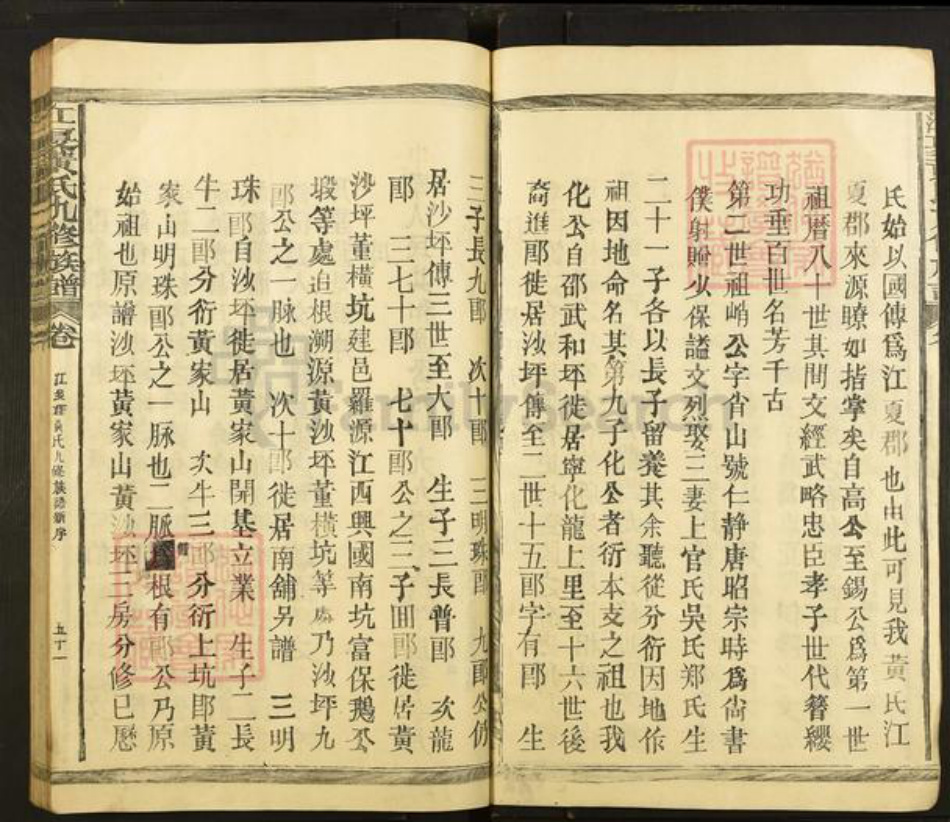 氏始以國傳爲江夏郡也由此可見我黃氏江
夏郡來源瞭如指掌矣自高公至錫公爲第一世
祖曆八十世其間文經武略忠臣孝子世代簪纓
功垂百世名芳千古
第二世祖峭公字峭山號仁靜唐昭宗時爲尚書
僕射贈少保謚文烈娶三妻上官氏吳氏郑氏生
二十一子各以長子留養其余聽從分衍因地作
祖因地命名其第九子化公者衍本支之祖也我
化公自邵武和坪徙居寧化龍上里至十六世後
裔進郎徙居沙坪傳至二世十五郎字有郎 生
三子長九郎 次十郎 三明珠郎 九郎公仍
居沙坪傳三世至大郎 生子三長普郎 次龍
郎 三七十郎 七十郎公之三子囬郎徙居黃
沙坪董橫坑建邑羅源江西興國南坑富保鵝公
塅等處追根溯源黃沙坪董橫坑等處乃沙坪九
郎公之一脉也 次十郎徙居南舖另譜 三明
珠郎自沙坪徙居黃家山開基立業 生子二長
牛二郎分衍黃家山 次牛三郎分衍上坑郎黃
家山明珠郎公之一脉也二脈根有郎公乃原
始祖也原譜沙坪黃家山黃沙坪三房分修已歷
江夏黃氏九修族譜 卷
江夏黃氏九修族譜新序
五十一
FamilySearch